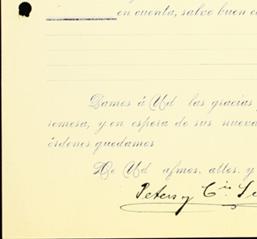 en cuenta, salvo buen
Damos á Ud las gracias
remesa, y en espera de sus nueva
órdenes quedamos
De Ud afmos. attos. y
Peters y Cía